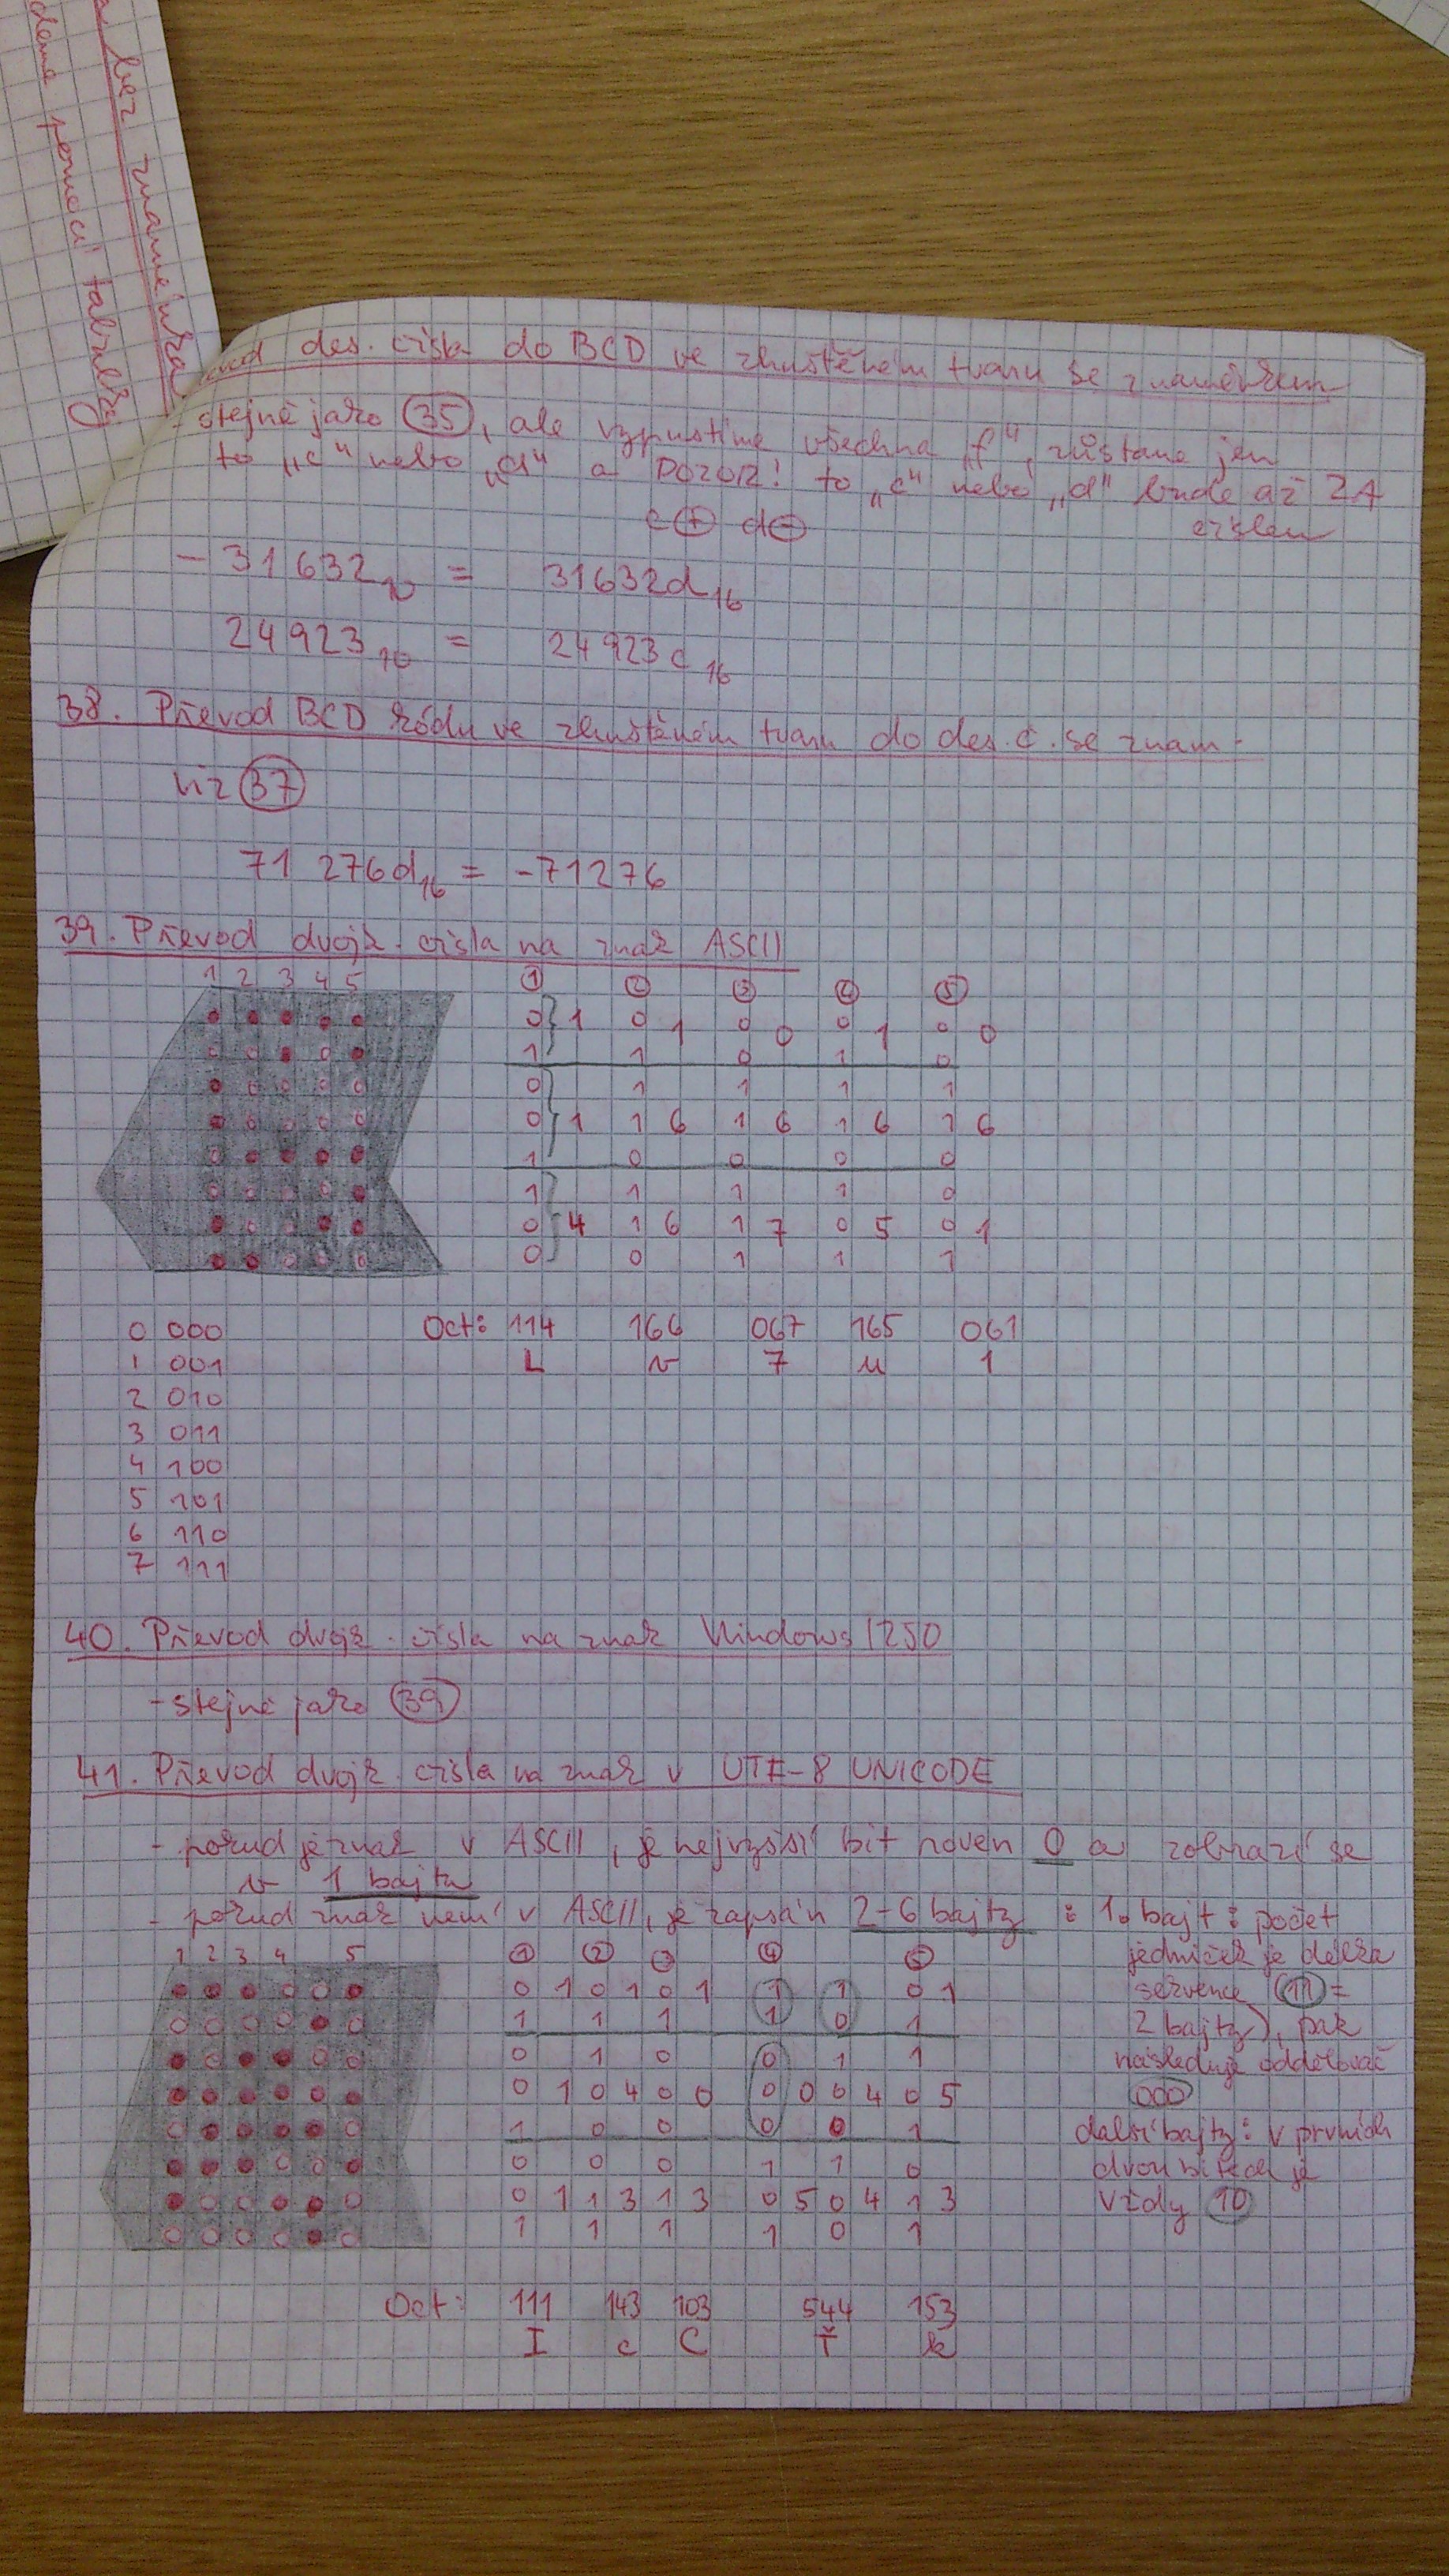 bez znaménka
pomocí tabulky
des. čísla do BCD ve zhuštěném tvaru se znaménkem
- stejně jako 35, ale vypustíme všechna „f“, zůstane jen
to „c“ nebo „d“ a POZOR! to „c“ nebo „d“ bude až ZA
číslem
c + d -
- 31632 10 = 31632d 16
24923 10 = 24923c 16
38. Převod BCD kódu ve zhuštěném tvaru do des. č. se znam.
viz 37
71 276d 16 = -71276
39. Převod dvojk. čísla na znak ASCII
1 2 3 4 5 1 2 3 4 5
0 1 0 1 0 0 0 1 0 0
1 1 0 1 0
0 1 1 1 1
0 1 1 6 1 6 1 6 1 6
1 0 0 0 0
1 1 1 1 0
0 4 1 6 1 7 0 5 0 1
0 0 1 1 1
0 000 Oct: 114 166 067 165 061
1 001 L v 7 u 1
2 010
3 011
4 100
5 101
6 110
7 111
40. Převod dvojk. čísla na znak Windows 1250
- stejně jako 39
41. Převod dvojk. čísla na znak v UTF-8 UNICODE
- pokud je znak v ASCII, je nejvyšší bit roven 0 a zobrazí se
v 1 bajtu
- pokud znak není v ASCII, je zapsán 2-6 bajty : 1. bajt: počet
1 2 3 4 5 1 2 3 4 5 jedniček je délka
0 1 0 1 0 1 1 1 0 1 sekvence (11 =
1 1 1 1 0 1 2 bajty), pak
0 1 0 0 1 1 následuje oddělovač
0 1 0 4 0 0 0 0 0 4 0 5 000
1 0 0 0 0 1 další bajty: v prvních
0 0 0 1 1 0 dvou bitech je
0 1 1 3 1 3 0 5 0 4 1 3 vždy 10
1 1 1 1 0 1
Oct: 111 143 103 544 153
I c C Ť k